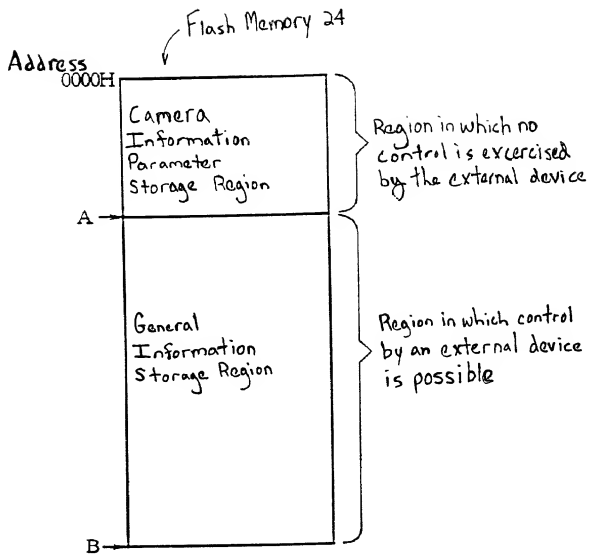 Flash Memory 24
Address
0000H
Camera
Information
Parameter
Storage Region
Region in which no
control is excercised
by the external device
A
General
Information
Storage Region
Region in which control
by an external device
is possible
B